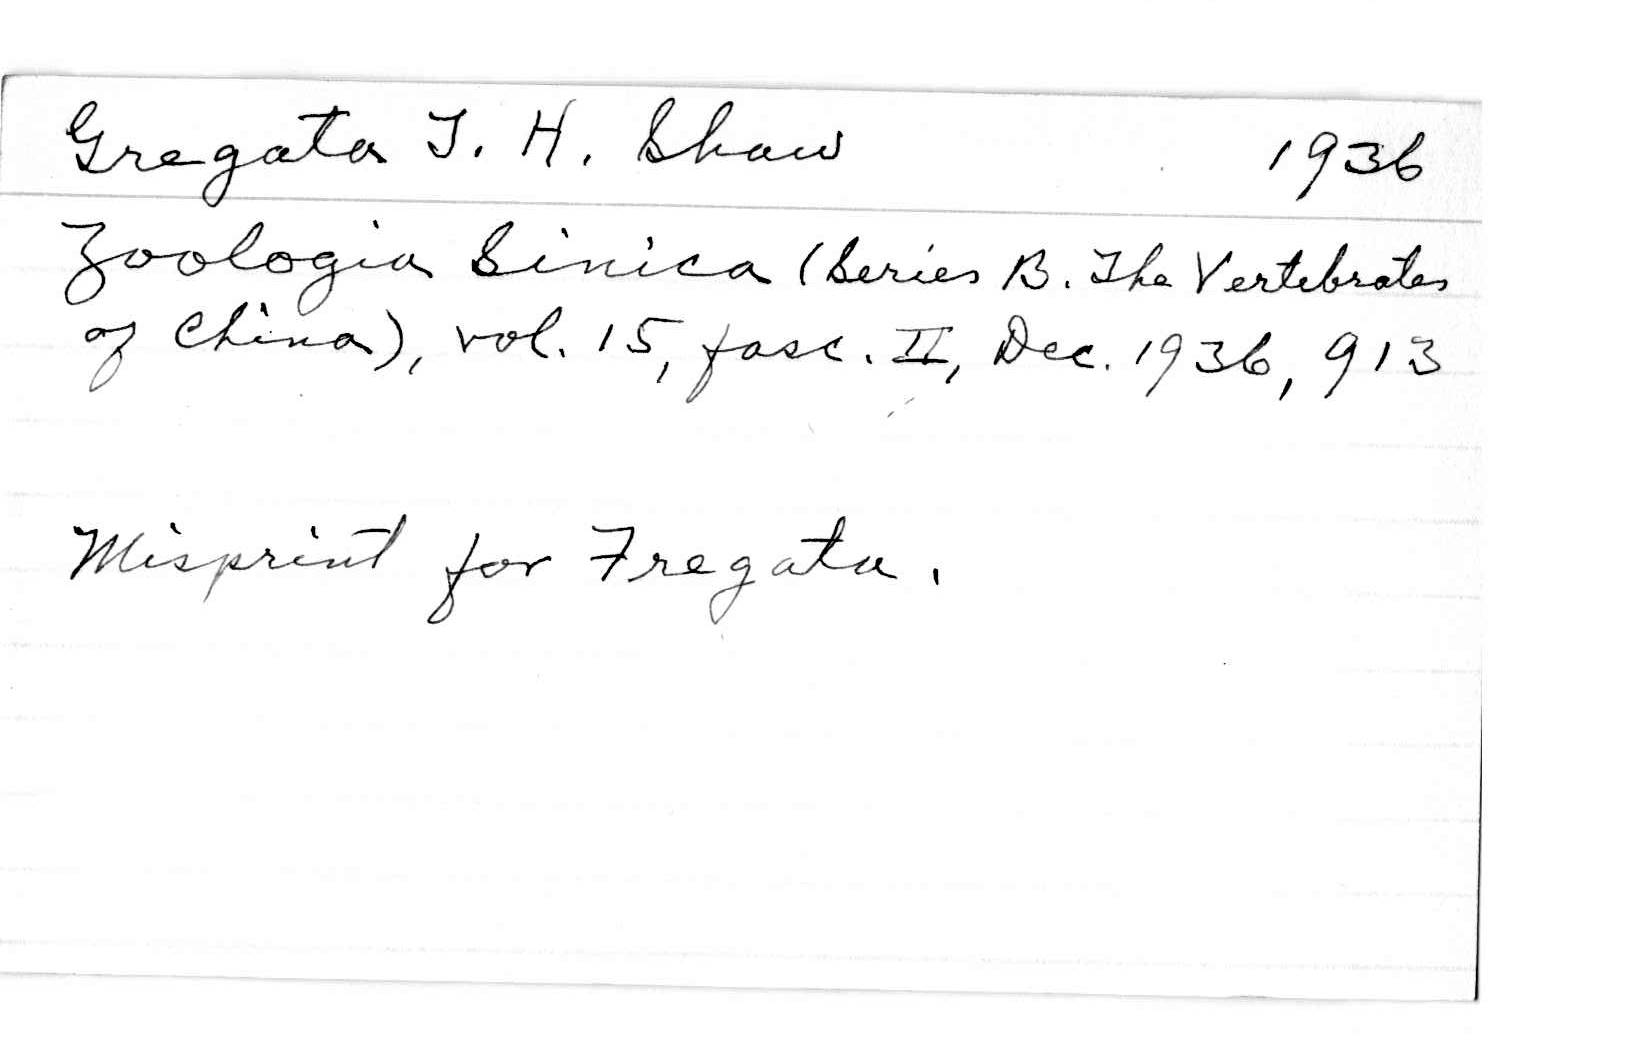 Gregata T. H. Shaw 1936
Zoologia Sinica (Series B. The Vertebrates
of China), vol. 15, fasc. II, Dec. 1936, 913
Misprint for Fregata.